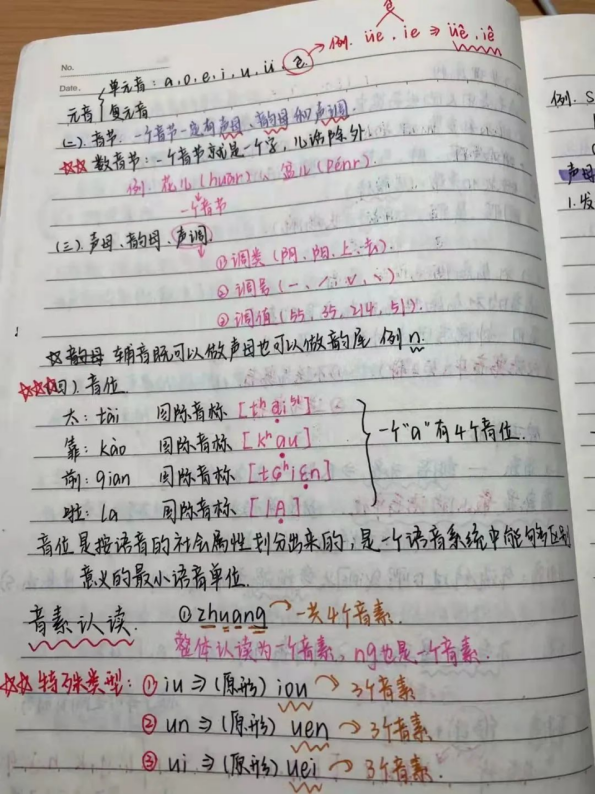 ê
No.
Date.
单元音：a, o, e, i, u, ü, ê → 例. üe, ie ⇒ üê, iê
元音
复元音
(二). 音节：一个音节一定有声母、韵母和声调.
☆☆ 数音节：一个音节就是一个字, 儿话除外.
例. 花儿 (huār)、盆儿 (pénr).
一个音节
(三). 声母、韵母、声调.
① 调类 (阴、阳、上、去).
② 调号 (ˉ、ˊ、ˇ、ˋ).
③ 调值 (55, 35, 214, 51).
☆ 韵母 辅音既可以做声母也可以做韵尾, 例 n.
☆☆☆(四). 音位.
太：tài 国际音标 [tʰai⁵¹]
靠：kào 国际音标 [kʰɑu] 一个“a”有4个音位.
前：qian 国际音标 [tɕʰiɛn]
啦：la 国际音标 [lA]
音位是按语音的社会属性划分出来的, 是一个语音系统中能够区别
意义的最小语音单位.
音素认读. ① zhuang → 一共4个音素.
整体认读为一个音素, ng也是一个音素.
☆☆ 特殊类型：① iu ⇒ (原形) iou → 3个音素
② un ⇒ (原形) uen → 3个音素
③ ui ⇒ (原形) uei → 3个音素.
例. S
声母
1. 发